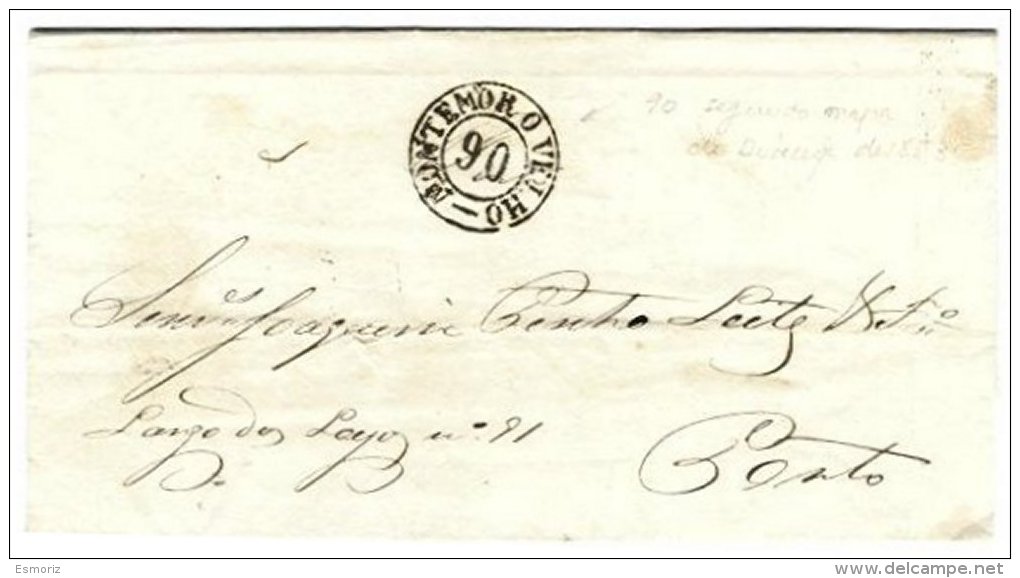 MONTEMOR O VELHO
90
90 segundo mapa
de
Senr.es Joaquim Pinto Leite & F.os
Largo dos Loyos nº. 91
Porto
Esmoriz
www.delcampe.net